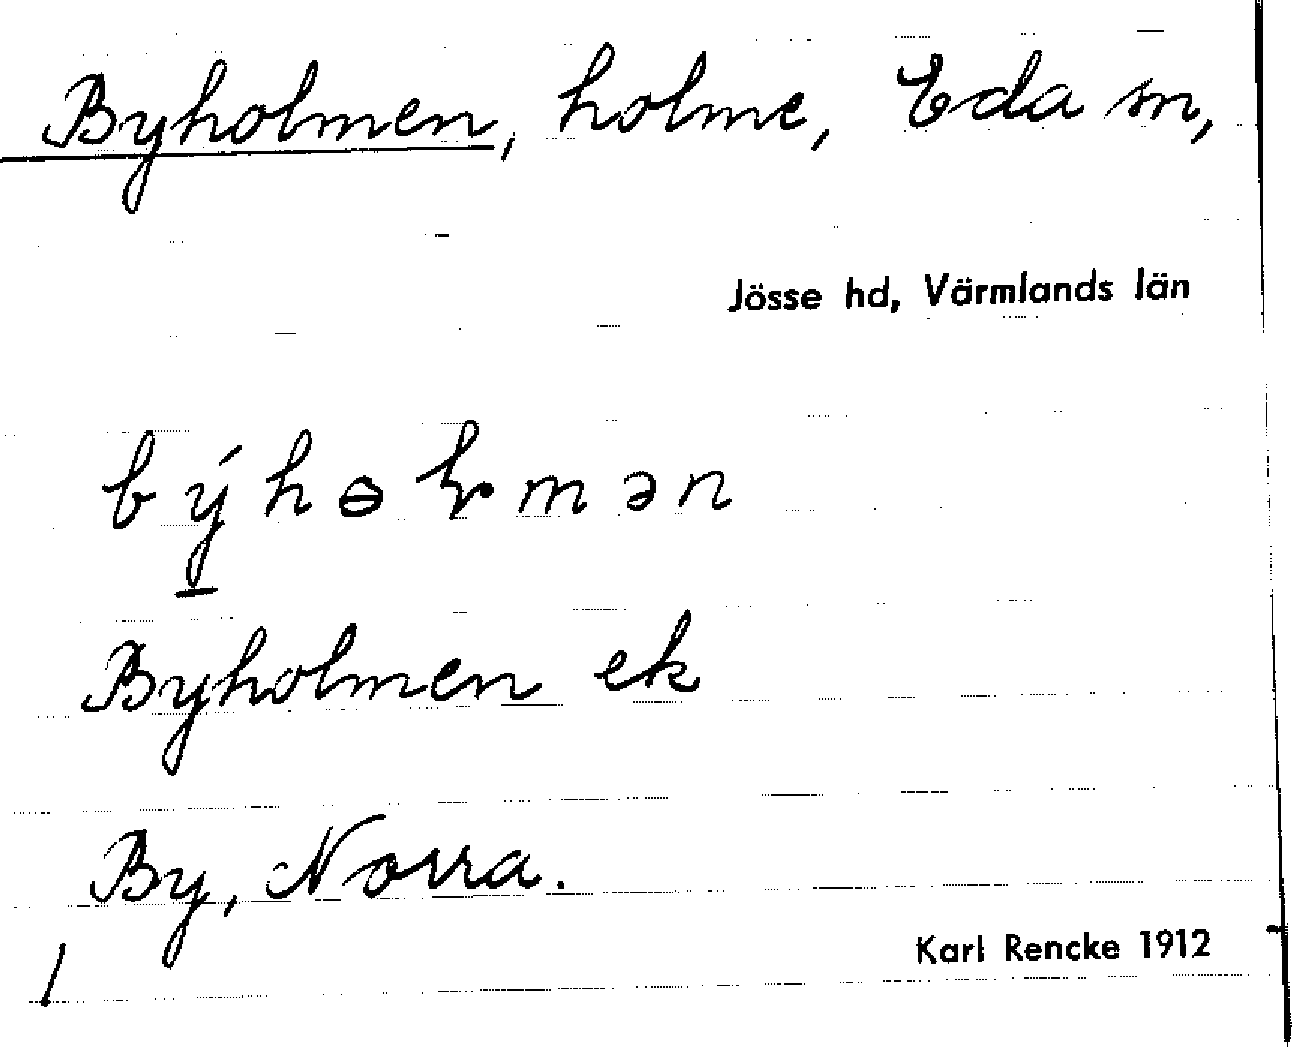 Byholmen, holme, Eda sn,
Jösse hd, Värmlands län
býhɵɫmən
Byholmen ek
By, Norra.
Karl Rencke 1912